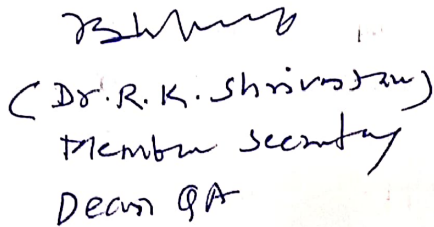 (Dr. R. K. Shrivastav)
Member Secretary
Dean QA